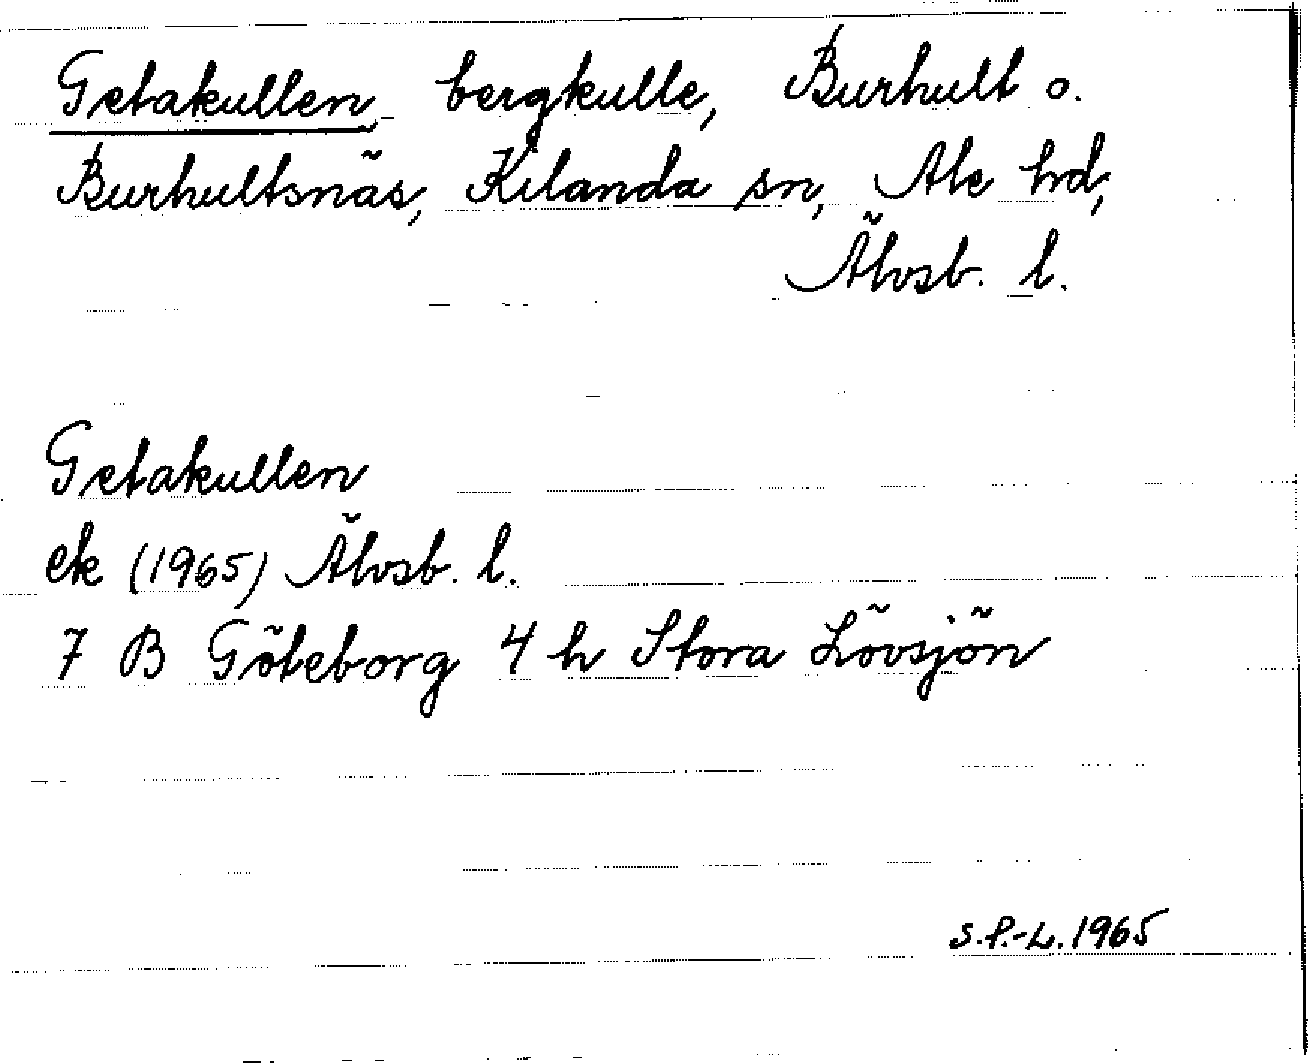 Getakullen, bergkulle, Burhult o.
Burhultsnäs, Kilanda sn, Ale hd,
Älvsb. l.
Getakullen
ek (1965) Älvsb. l.
7 B Göteborg 4 h Stora Lövsjön
S.P.-L. 1965